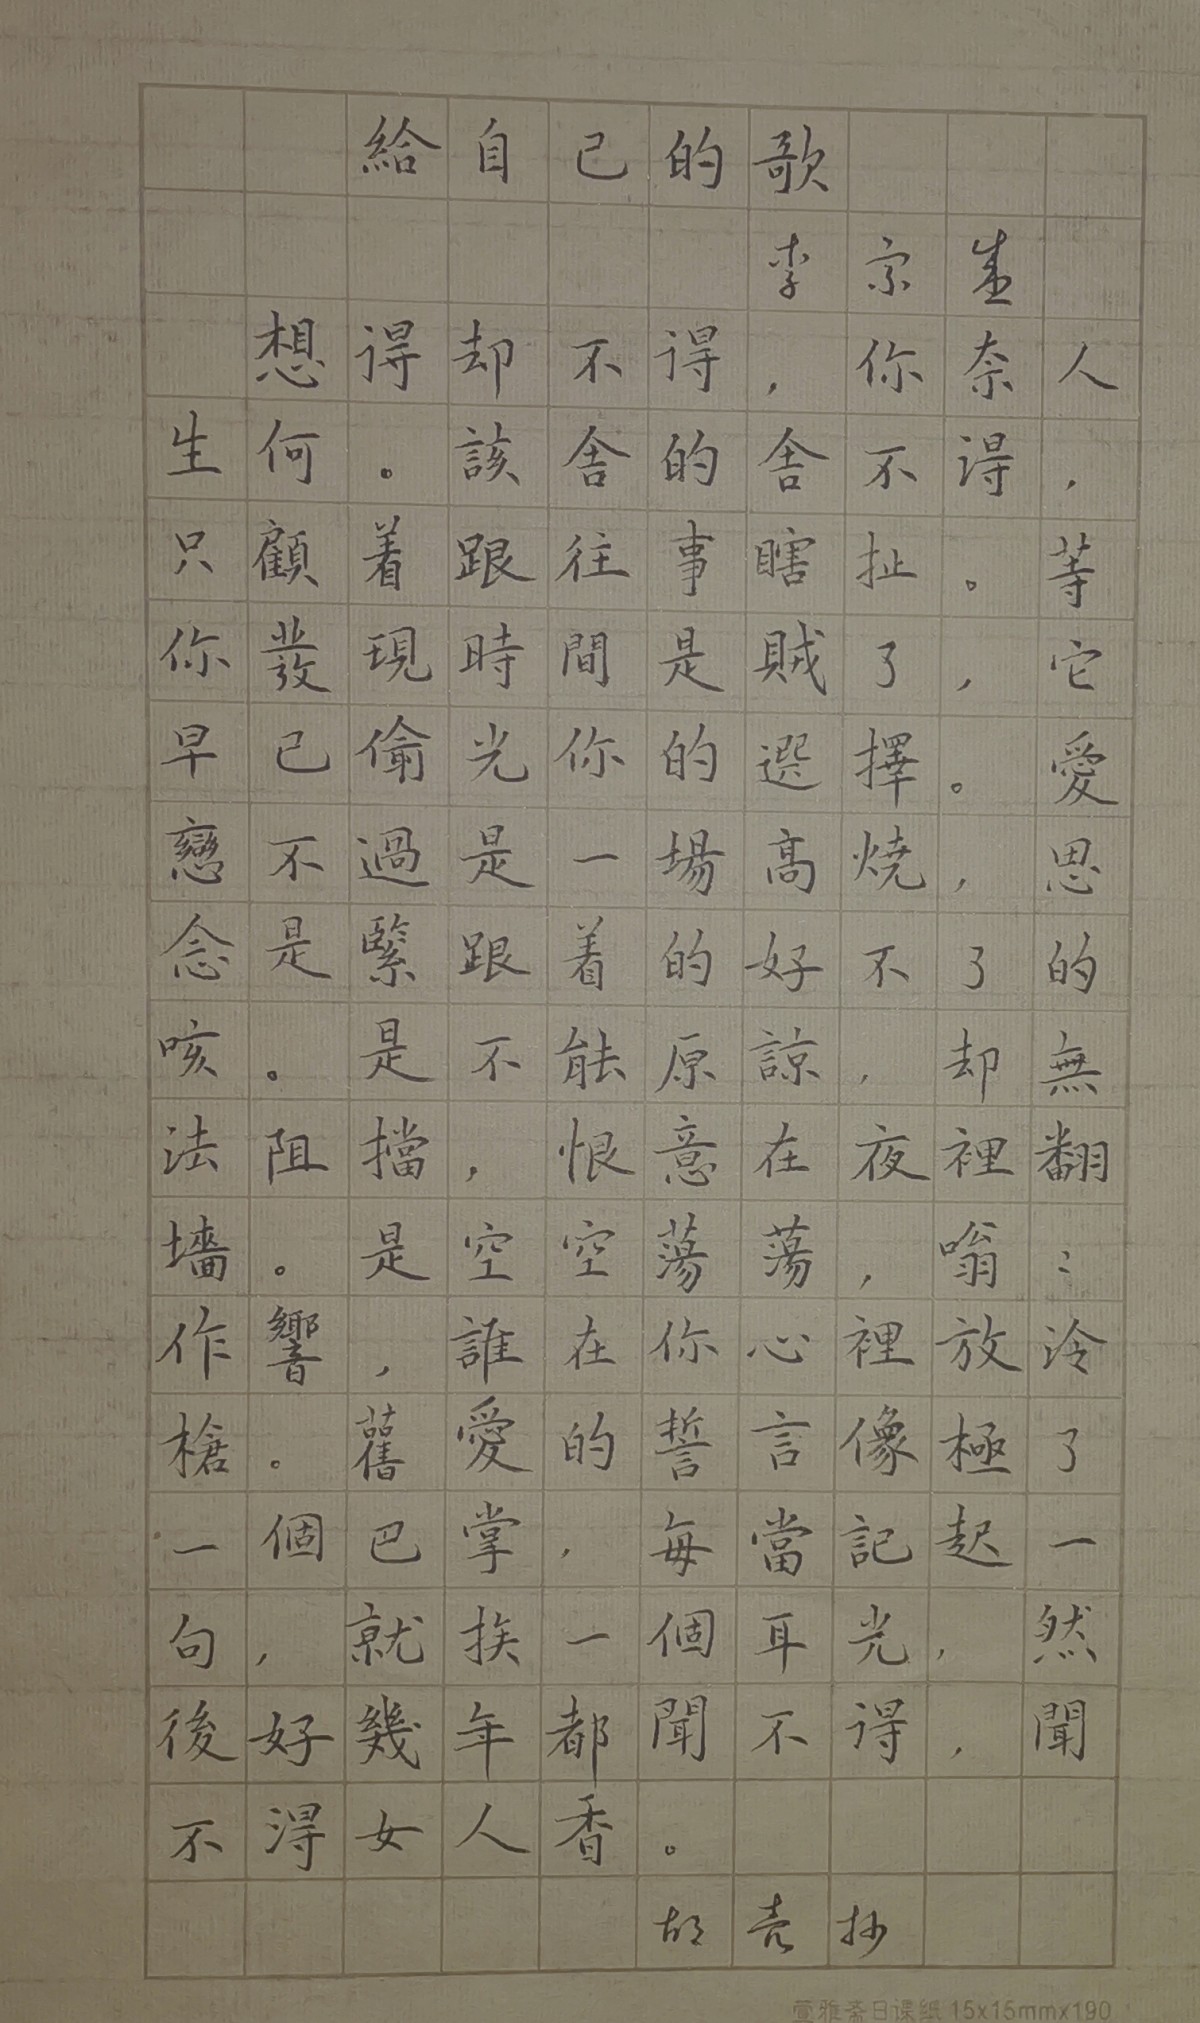 給自己的歌
李宗盛
想得却不得，你奈人
生何。該舍的舍不得，
只顧着跟往事瞎扯。等
你發現時間是賊了，它
早已偷光你的選擇。愛
戀不過是一場高燒，思
念是緊跟着的好不了的
咳。是不能原諒，却無
法阻擋，恨意在夜裡翻
墻。是空空蕩蕩，嗡〻
作響，誰在你心裡放冷
槍。舊愛的誓言像極了
一個巴掌，每當記起一
句，就挨一個耳光，然
後好幾年都聞不得，聞
不得女人香。
胡亮抄
萱雅斋日课纸 15x15mmx190